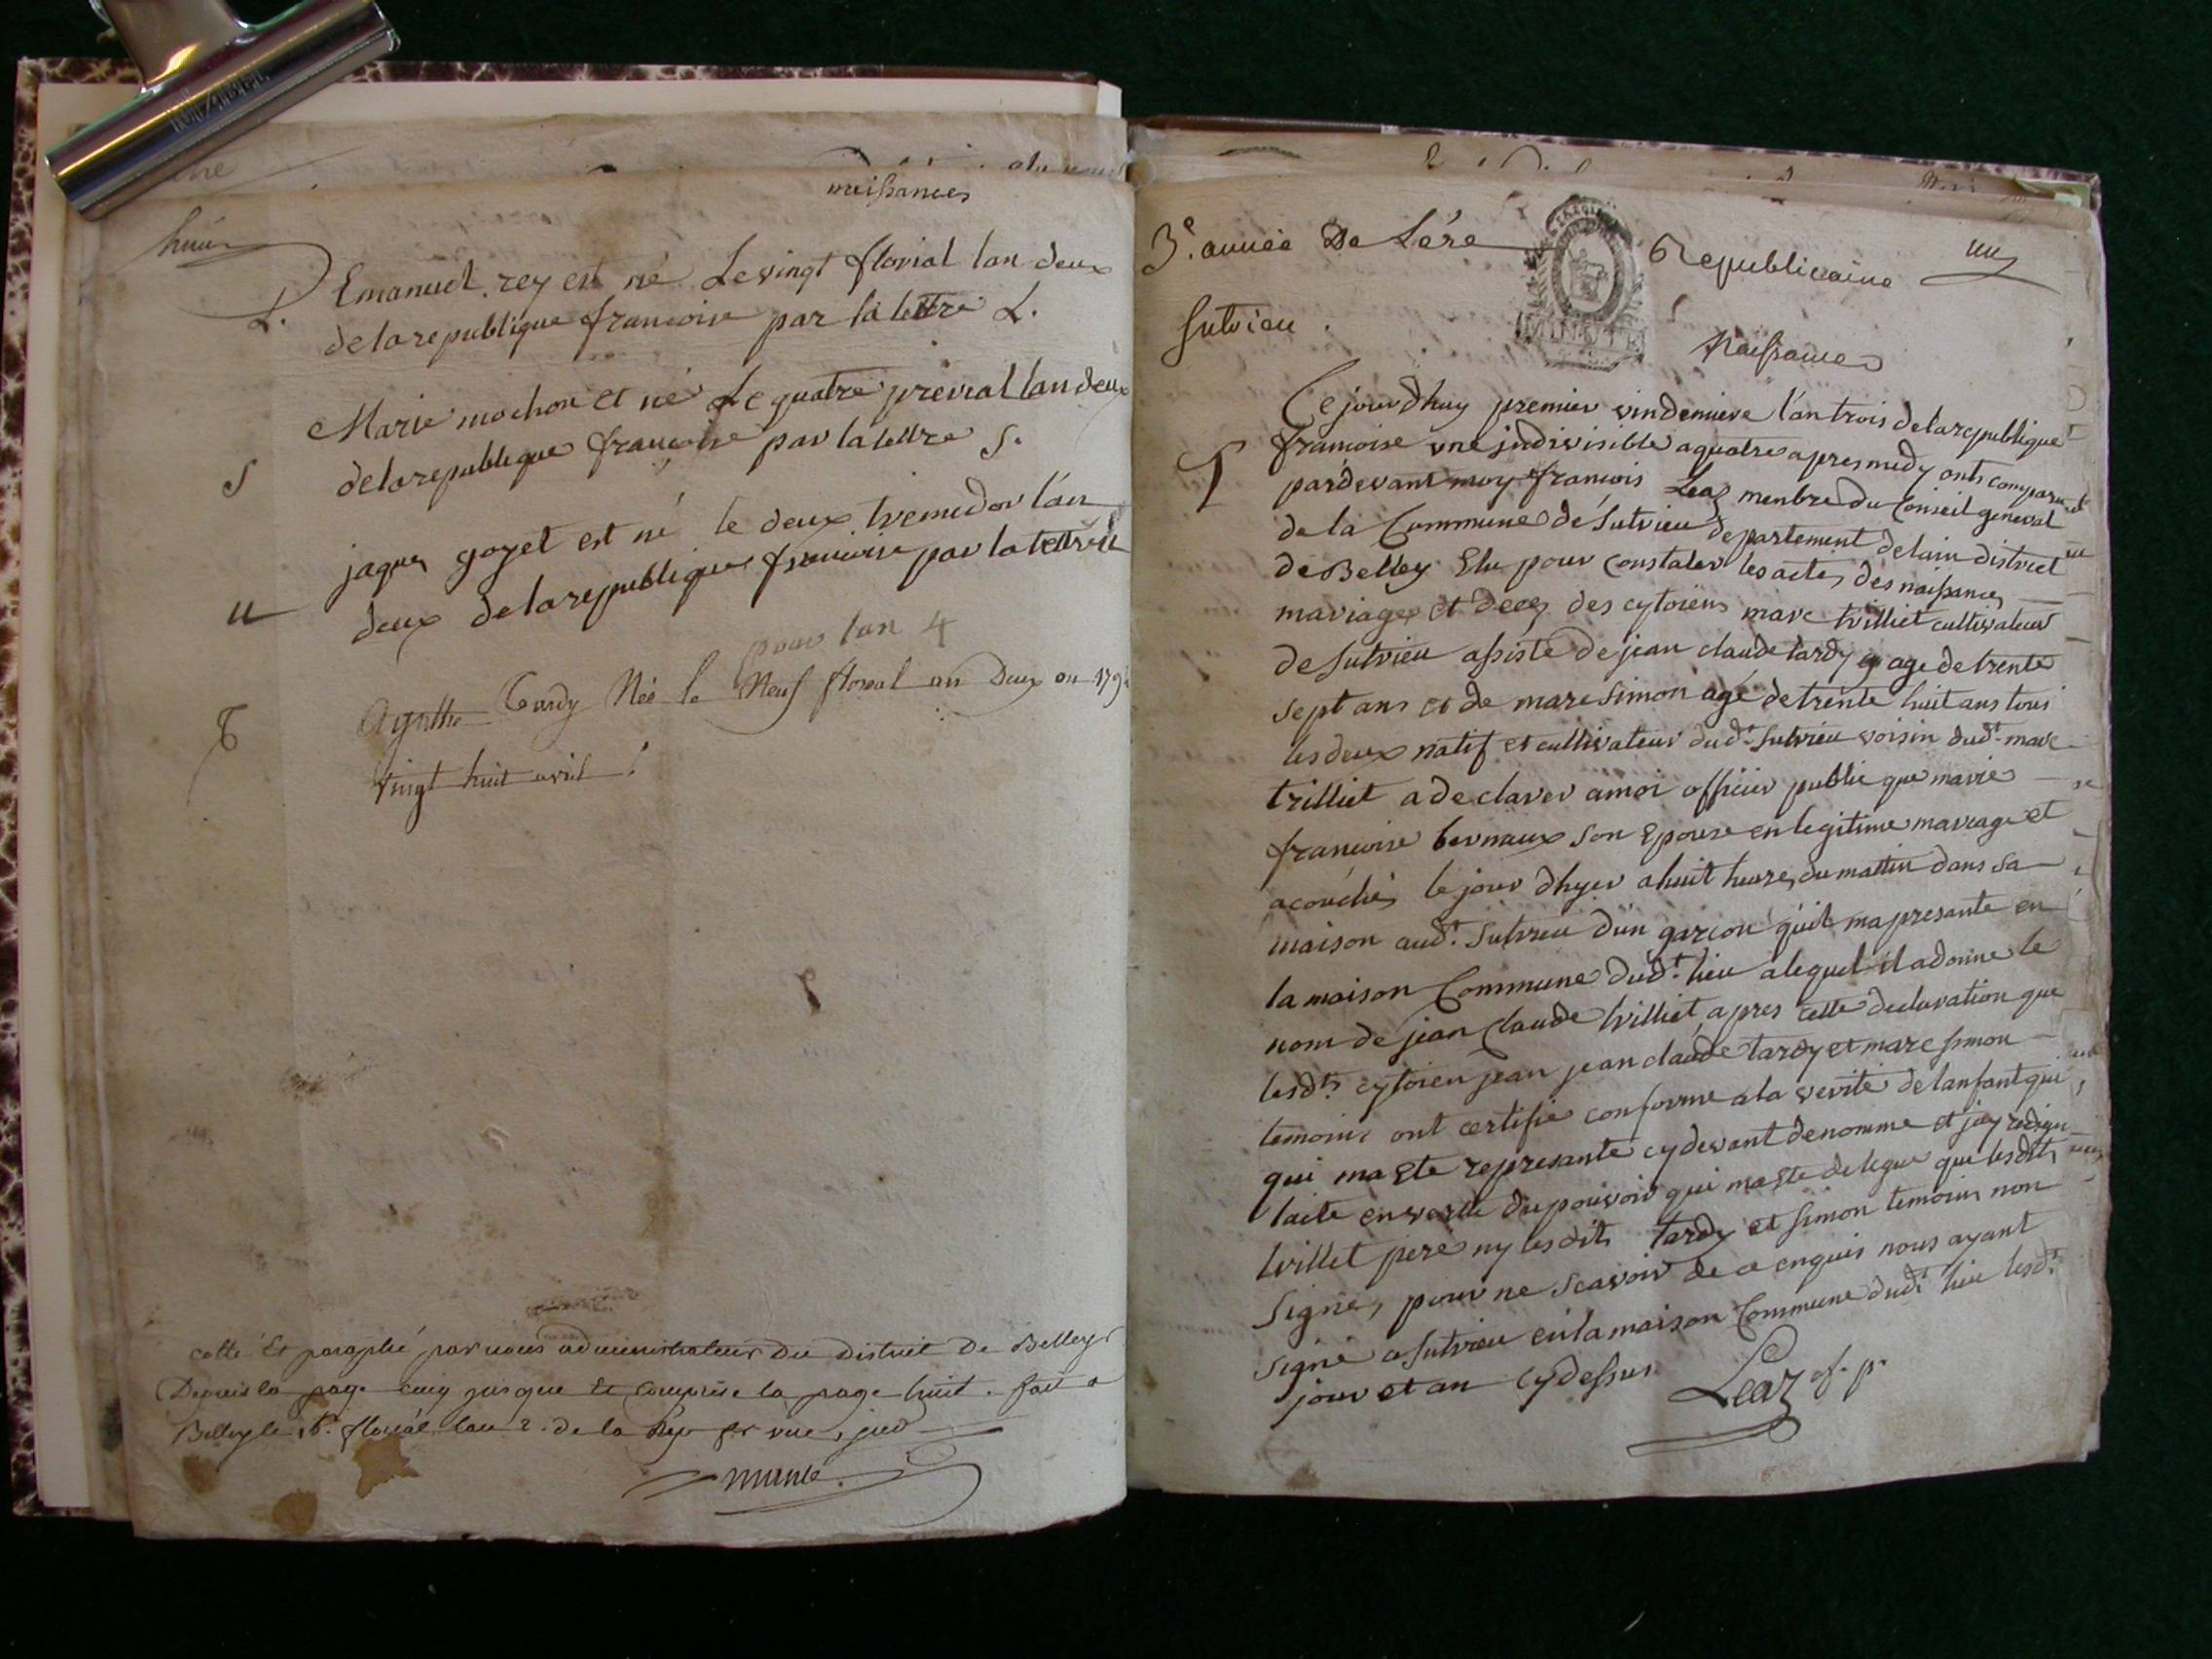 naissances
huit
L. Emanuel rey est né Le vingt florial lan deux
de la republique francoise par la lettre L.
Marie mochon et né Le quatre prerial lan deux
S de la republique françoise par la lettre S.
jaques goyet est né le deux tremidor l'an
u deux de la republique francoise par la lettre u
pour lan 4
T Agathe Tardy Née le Neuf floreal an Deux ou 179
vingt huit avril
cotté Et paraphé par nous administrateur Du District De Belley
Depuis la page cinq jusque Et comprise la page huit. fait a
Belley le 16. floréal lan 2. de la Rep fr une, ind
3e. année De L'ére Republicaine un
Sutrieu. MINUTE
Naissances
Cejourdhuy premier vindemiere l'an trois de la republique
T francoise une jndivisible a quatre apres midy onts comparu
pardevant moy francois Leaz menbre du Conseil general
de la Commune de Sutrieu departement de lain district
de Belley Elu pour constater les actes des naissances
mariages et decez des cytoiens marc trilliet cultivateur
de Sutrieu assiste de jean claude tardy age de trente
sept ans et de marc simon age de trente huit ans tous
les deux natif et cultivateur dudt. Sutrieu voisin dudt. marc
trilliet a declarer a moi officier public que marie
francoise bernaux son Epouse en legitime mariage et
acouchés le jour dhyer a huit heures du mattin dans sa
maison audt. Sutrieu d'un garcon qu'il ma presante en
la maison Commune dudt. lieu a lequel il a donne le
nom de jean Claude trilliet apres cette declaration que
lesdts. cytoien jean jean claude tardy et marc simon
temoins ont certifie conforme a la verité de lanfant qui
qui ma Ete represante cy devant denomme et jay redigu
lacte en vertu du pouvoir qui ma Ete delegue que lesdits
trilliet pere ny lesdits tardy et simon temoins non
signe, pour ne scavoir de ce enquis nous ayant
signé a Sutrieu en la maison Commune dudt. lieu lesdt.
jour et an cy dessus Leaz of. p.